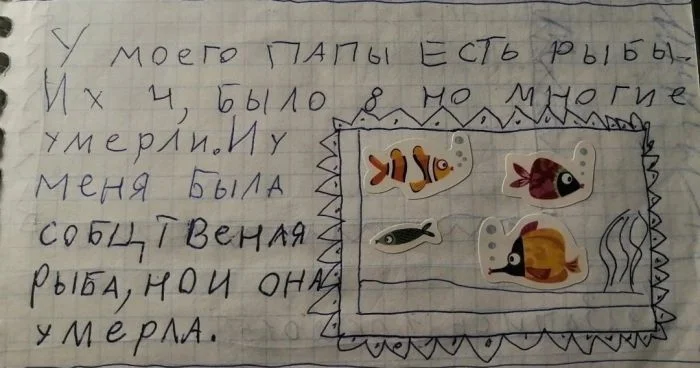 У МОЕГО ПАПЫ ЕСТЬ РЫБЫ.
ИХ 4, БЫЛО 8 НО МНОГИЕ
УМЕРЛИ. И У
МЕНЯ БЫЛА
СОБЦТВЕНАЯ
РЫБА, НО И ОНА
УМЕРЛА.